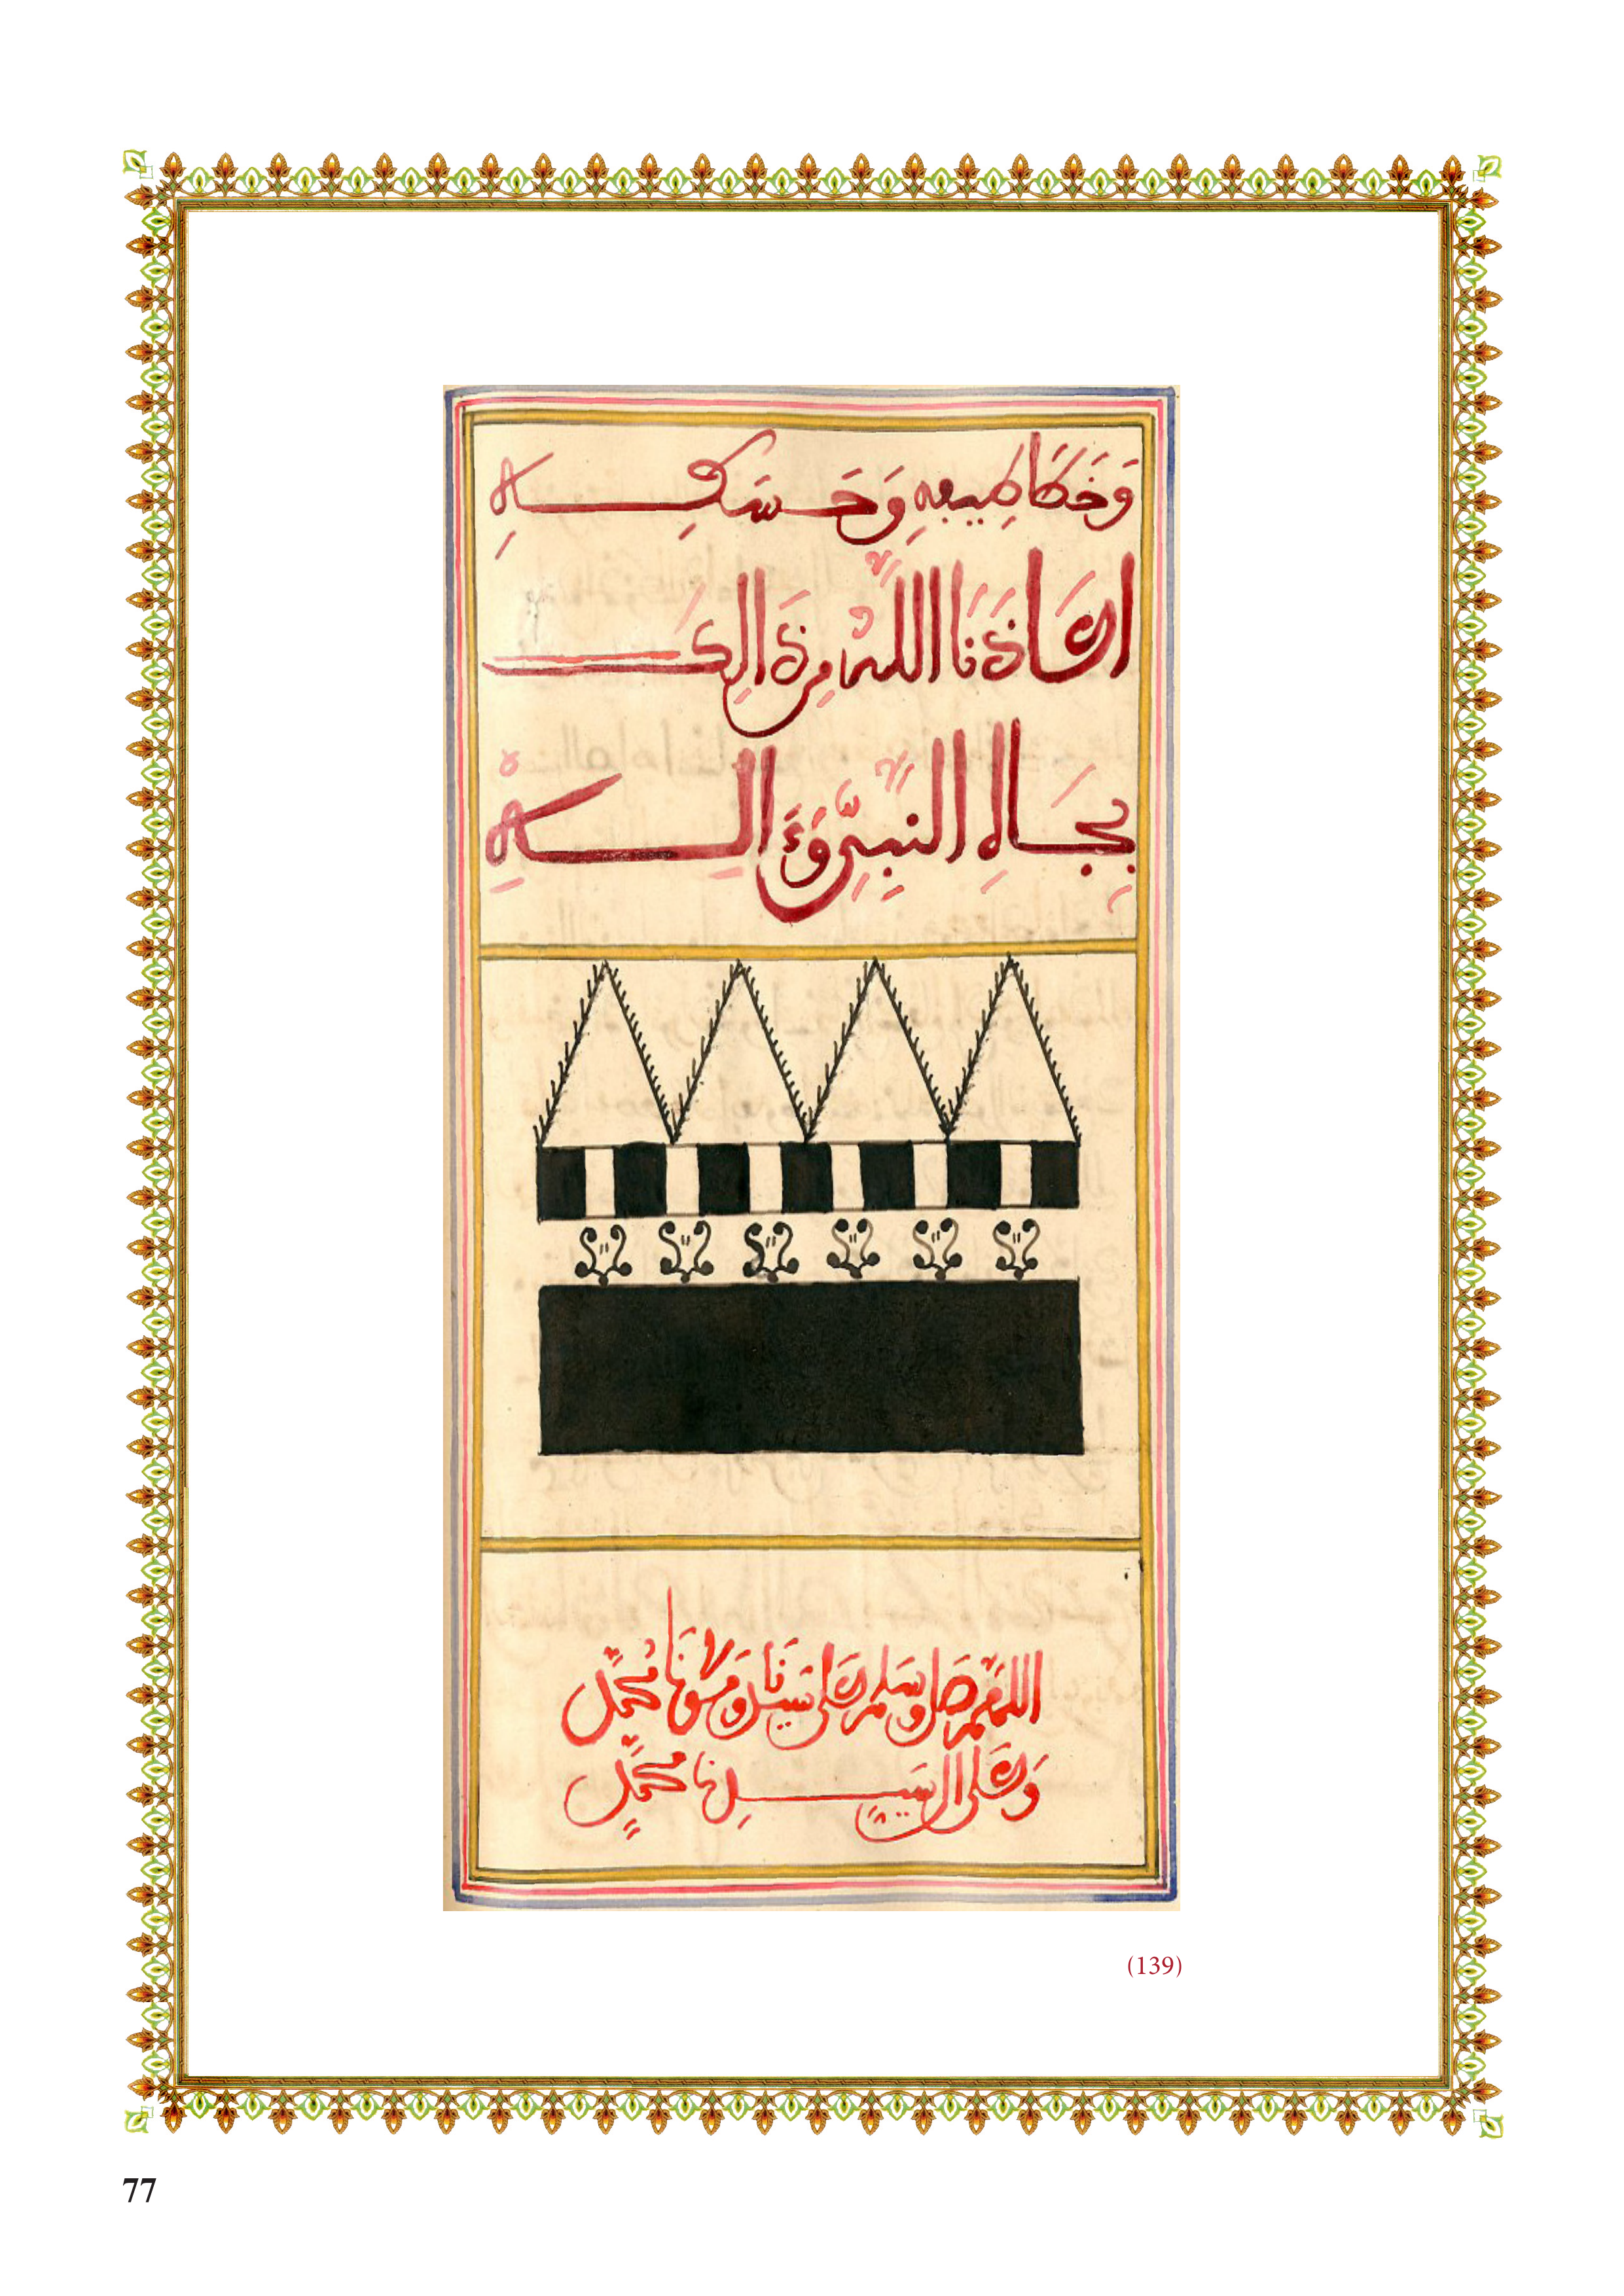 وَخَطَاطِيفِهِ وَحَسَكِهِ
اعَاذَنَا اللَّهُ مِن ذَالِكَ
بِجَاهِ النَّبِيِّ وَءَالِهِ
اللَّهُمَّ صَلِّ وَسَلِّمْ عَلَى سَيِّدِنَا وَمَوْلَانَا مُحَمَّدٍ
وَعَلَى ال سَيِّدِنَا مُحَمَّدٍ
(139)
77